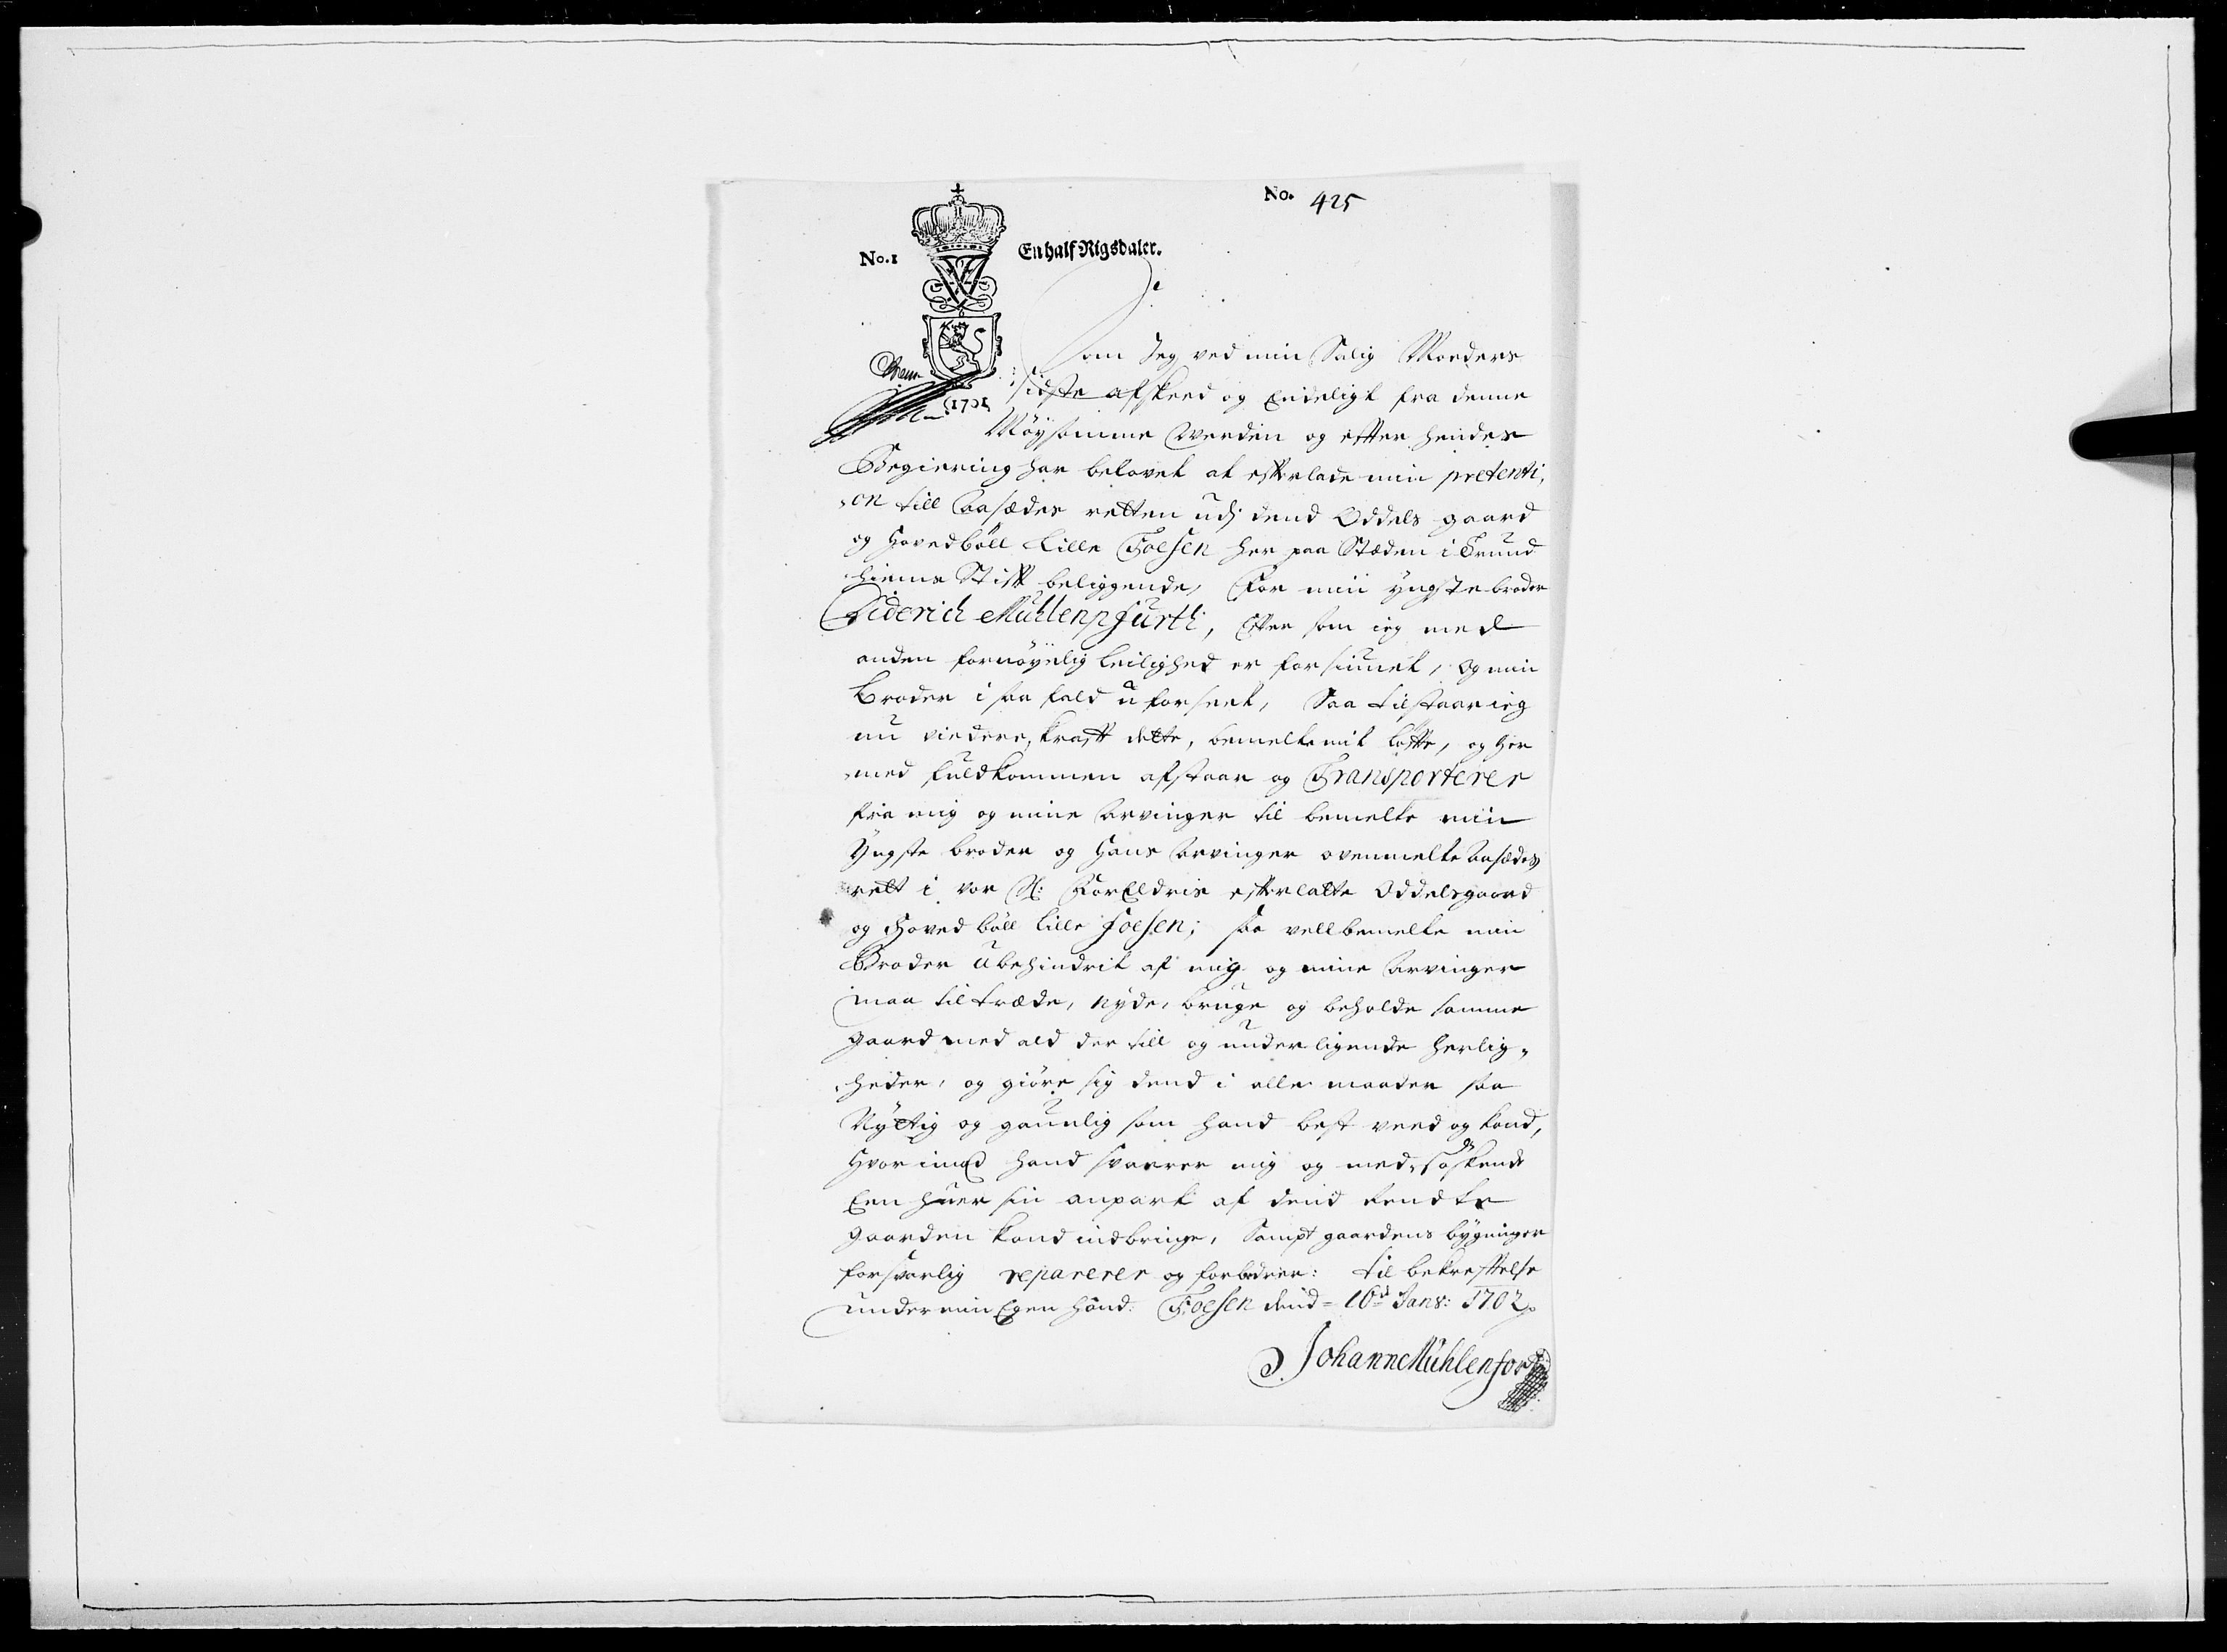 No. 425
No. 1 En half Rigsdaler.
Som Jeg ved min Salig Moeders
1701 sidste afskeed og Endeligt fra denne
Møysomme Werden og efter hendes
Begiering har belovet at efterlade min pretenti,
,on till Aasædes retten udj dend Oddels gaard
og Hovedböll Lille Foesen her paa Stæden i Trund
hiems Stift beliggende, For min yngste broder
Diderich Mühlenpfurth, Efter som ieg med
anden fornöyelig leilighed er forsiunet, og min
Broder i saa fald uforseet, Saa tilstaar ieg
nu viedere, krafft dette, bemelte mit löfte, og her
med fuldkommen afstaar og Transporterer
fra mig og mine Arvinger til bemelte min
Yngste broder og Hans Arvinger ovenmelte Aasædes
rett i vor Sl: ForEldris efterlatte Oddelsgaard
og Hovedböll lille Foesen; saa vellbemelte min
Broder Ubehindrit af mig og mine Arvinger
maa tiltræde, nyde, bruge og beholde samme
gaard med ald der till og underligende herlig,,
,heder, og giöre sig dend i alle maader saa
Nyttig og gaunlig som hand best veed og kand,
Hvor imod hand svarer mig og med söskende
Een huer sin anpart af dend Rendte
gaarden kand indbringe, Sampt gaardens bygninger
forsvarlig reparerer og forbedrer: til bekreftelse
under min Egen Hand. Foesen dend = 16d Janv: 1702
Johan Mühlenfort